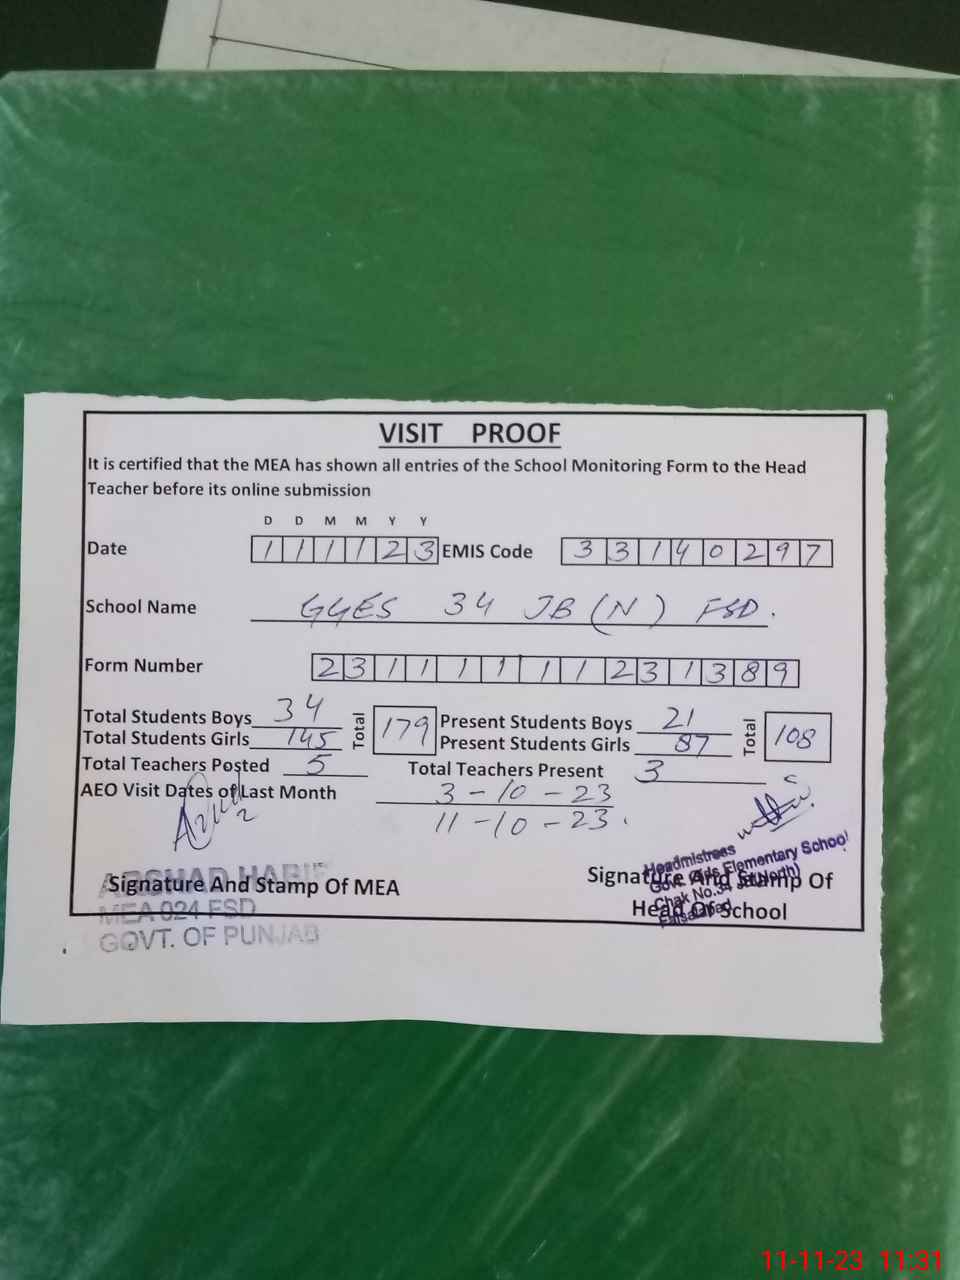 VISIT PROOF
It is certified that the MEA has shown all entries of the School Monitoring Form to the Head
Teacher before its online submission
D D M M Y Y
Date 1 1 1 1 2 3 EMIS Code 3 3 1 4 0 2 9 7
School Name GGES 34 JB (N) FSD.
Form Number 2 3 1 1 1 1 1 1 2 3 1 3 8 9
Total Students Boys 34 Total 179 Present Students Boys 21 Total 108
Total Students Girls 145 Present Students Girls 87
Total Teachers Posted 5 Total Teachers Present 3
AEO Visit Dates of Last Month 3-10-23
11-10-23.
Signature And Stamp Of MEA
ARSHAD HABIB
MEA 024 FSD
GOVT. OF PUNJAB
Signature And Stamp Of
Head Of School
Headmistress
Govt. Girls Elementary School
Chak No.34 JB(North)
Faisalabad
11-11-23 11:31